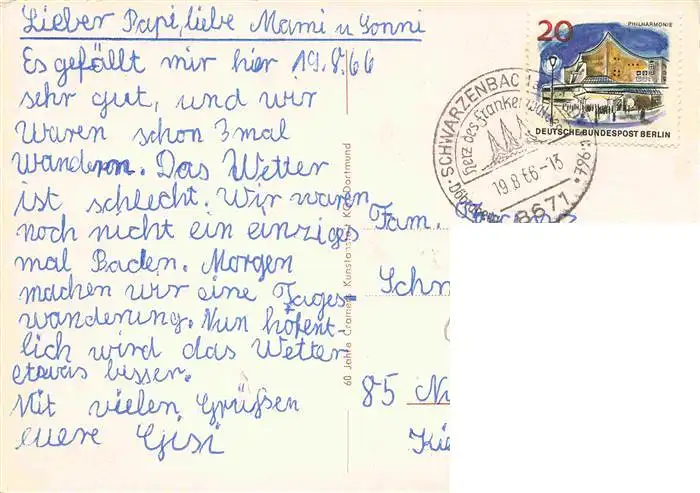 Lieber Papi, liebe Mami u Sonni
Es gefällt mir hier 19.8.66
sehr gut, und wir
waren schon 3mal
wandern. Das Wetter
ist schlecht. Wir waren
noch nicht ein einziges
mal Baden. Morgen
machen wir eine Tages-
wanderung. Nun höfent-
lich wird das Wetter
etwas bisser.
Mit vielen Grüßsen
euere Gisi
60 Jahre Cramers Kunstanstalt KG, Dortmund
Fam.
Schm
85 Nü
Kie
SCHWARZENBACH
Herz des Frankenwaldes
19.8.66-13
8671
20
PHILHARMONIE
DEUTSCHE BUNDESPOST BERLIN